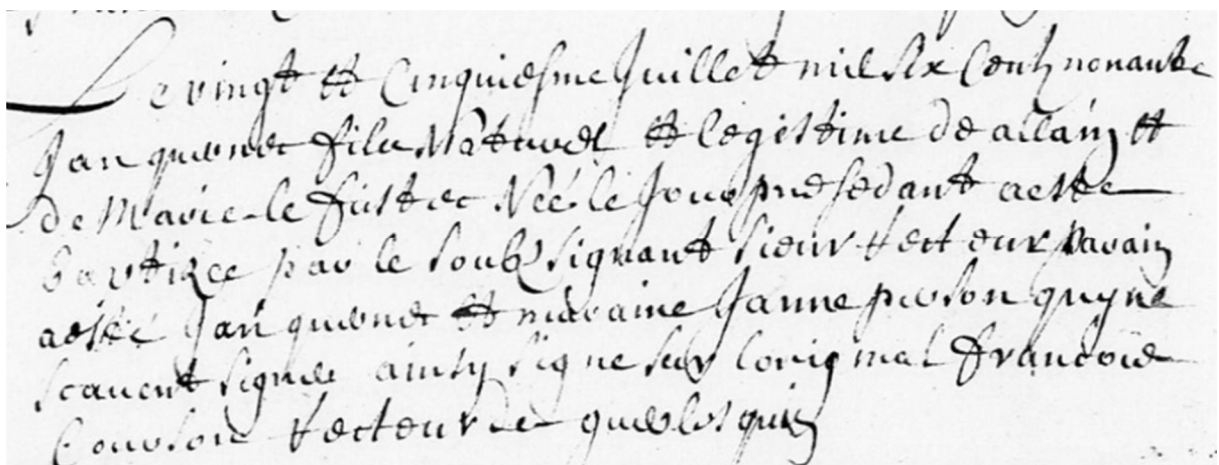 Le vingt et Cinquiesme Juillet mil six Cents nonante
Jan quenec fils Naturel et legistime de allain et
de Marie le fustec Née le Jour presedant aeste
baptizee par le soubsignant sieur recteur parain
aesté Jan quenec et maraine Janne person quy ne
scavent signer ainsy signe sur lorigmal francois
Courson recteur de querlosquin